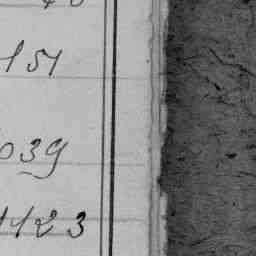 151
039
1423